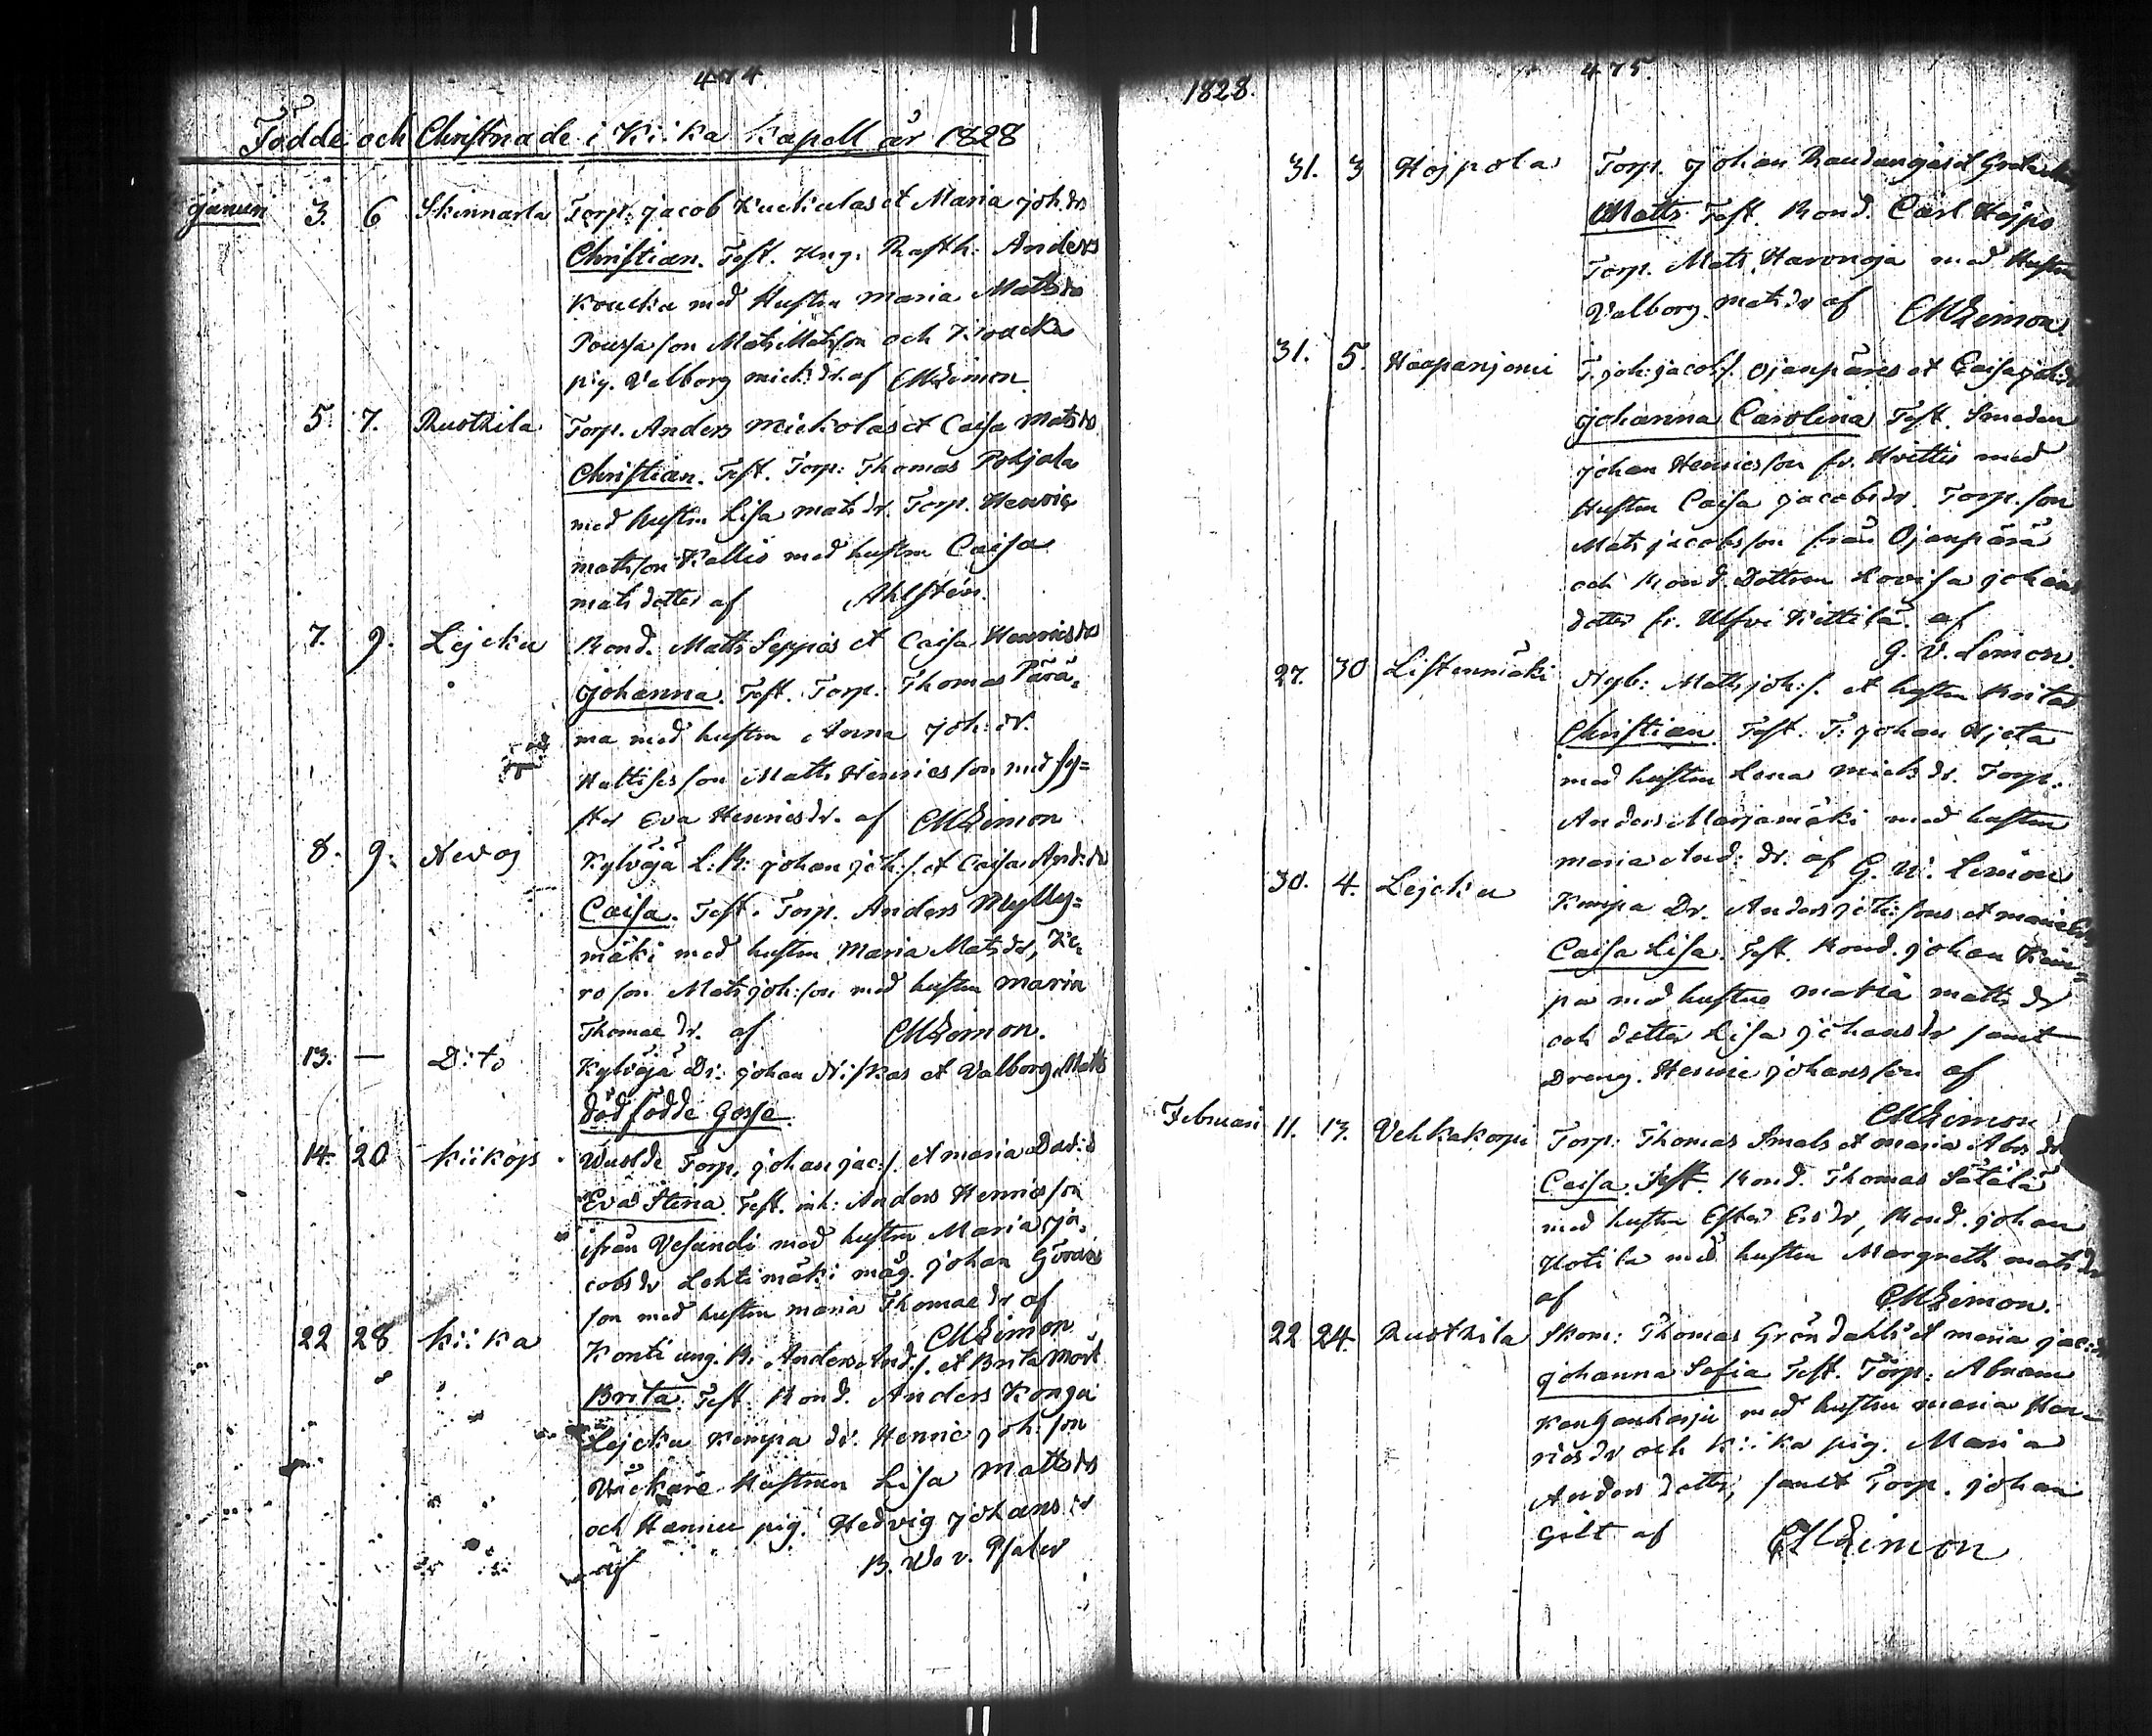 474
Födde och Christnade i Kiika Kapell år 1828
Januari 3. 6 Skinnarla Torp: Jacob Kuckulas et Maria Joh:dr
Christian. Test. Ung. Rusth: Anders
Koucku med Hustru Maria Matts dr
Poussa son Mats Matsson och Kioucka
pig. Valborg Mich: dr. af CMLimon
5. 7. Rusthila Torp. Anders Mickolas et Caisa Mats dr
Christian. Test. Torp: Thomas Pohjola
med hustru Lisa Mats dr. Torp. Henric
Matsson Kallio med hustru Caisa
Mats dotter af Ahlstén.
7. 9. Lejcku Bond. Matts Seppäs et Caisa Henrics dr
Johanna. Test. Torp. Thomas Pärä-
ma med hustru Anna Joh: dr.
Mattises son Matts Henricsson med sy=
ster Eva Henricsdr. af CMLimon
8. 9. Newoj Kylväjä L: B: Johan Joh: s. et Caisa And: dr
Caisa. Test. Torp. Anders Mylly=
mäki med hustru Maria Mats dr, Ke-
ro son Mats Joh: son med hustru Maria
Thomae dr. af CMLimon.
13. — Dito Kylväjä Dr: Johan Niskas et Valborg Matts
dödfödde Gosse.
14. 20 Kiikois Torp. Johan Jac: s. et Maria Dav: d
Eva Stina Test. inh: Anders Henricsson
ifrån Vesandi med hustru Maria Ja-
cobs dr Lehtimäki måg. Johan Görans
son med hustru Maria Thomae dr af
CMLimon
22 28 Kiika Konti ung. B: Anders And: s. et Brita Mårt
Brita. Test. Bond. Anders Konga
Lejcku Kempa dr. Henric Joh: son
Hustrun Lisa Matts dr
och Hannu pig. Hedvig Johans dr
af B. W. v. Pfaler
1828. 475.
31. 3 Hojpola Torp. Johan et Greta
Matts Test. Bond. Carl Hojpo
Torp. Mats Haronoja med Hustru
Valborg Mats dr af CMLimon.
31. 5. Haapanjemi T. Joh: Jacob s. Ojanpäres et Caisa Joh: dr
Johanna Carolina Test. Smeden
Johan Henricsson fr. Hvittis med
Hustru Caisa Jacobs dr. Torp. son
Mats Jacobsson från Ojanpärä
och Bond. Dottren Lovisa Johans
dotter fr. Ulfvi Kittilä. af
G. W. Limon.
27. 30 Listenmäki Nyb: Matts Joh: s. et hustru Britas
Christian Test. T: Johan Hjeta
med hustru Lena Michs dr. Torp.
Anders Marjamäki med hustru
Maria And: dr. af G. W. Limon
30. 4. Lejcku Kempa Dr. Anders Joh: sons et Maria
Caisa Lisa. Test. Bond. Johan Kem=
pa med hustru Maria Matts dr
och dotter Lisa Johans dr samt
Dreng. Henric Johansson af
CMLimon
Februari 11. 13. Vehkakorpi Torp: Thomas Smals et Maria Abrs dr
Caisa. Test. Bond. Thomas Sätälä
med hustru Ester Ers dr, Bond. Johan
Kotila med hustru Margreth Mats dr
af CMLimon.
22 24. Rusthila Skom: Thomas Gröndahls et Maria Jac: dr
Johanna Sofia Test. Torp: Abram
Kangasharju med hustru Maria Hen-
rics dr och Kiika pig. Maria
Anders dotter, samt Torp. Johan
Gilt af CMLimon